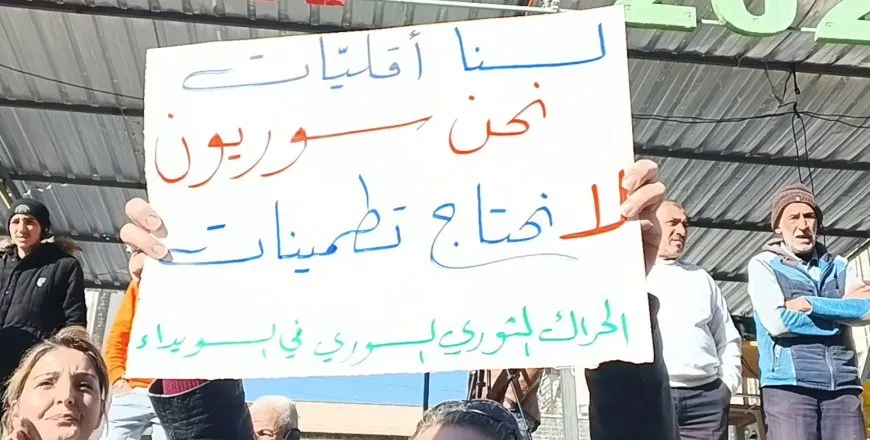 لسنا أقليّات
نحن سوريون
لا نحتاج تطمينات
الحراك الثوري السوري في السويداء